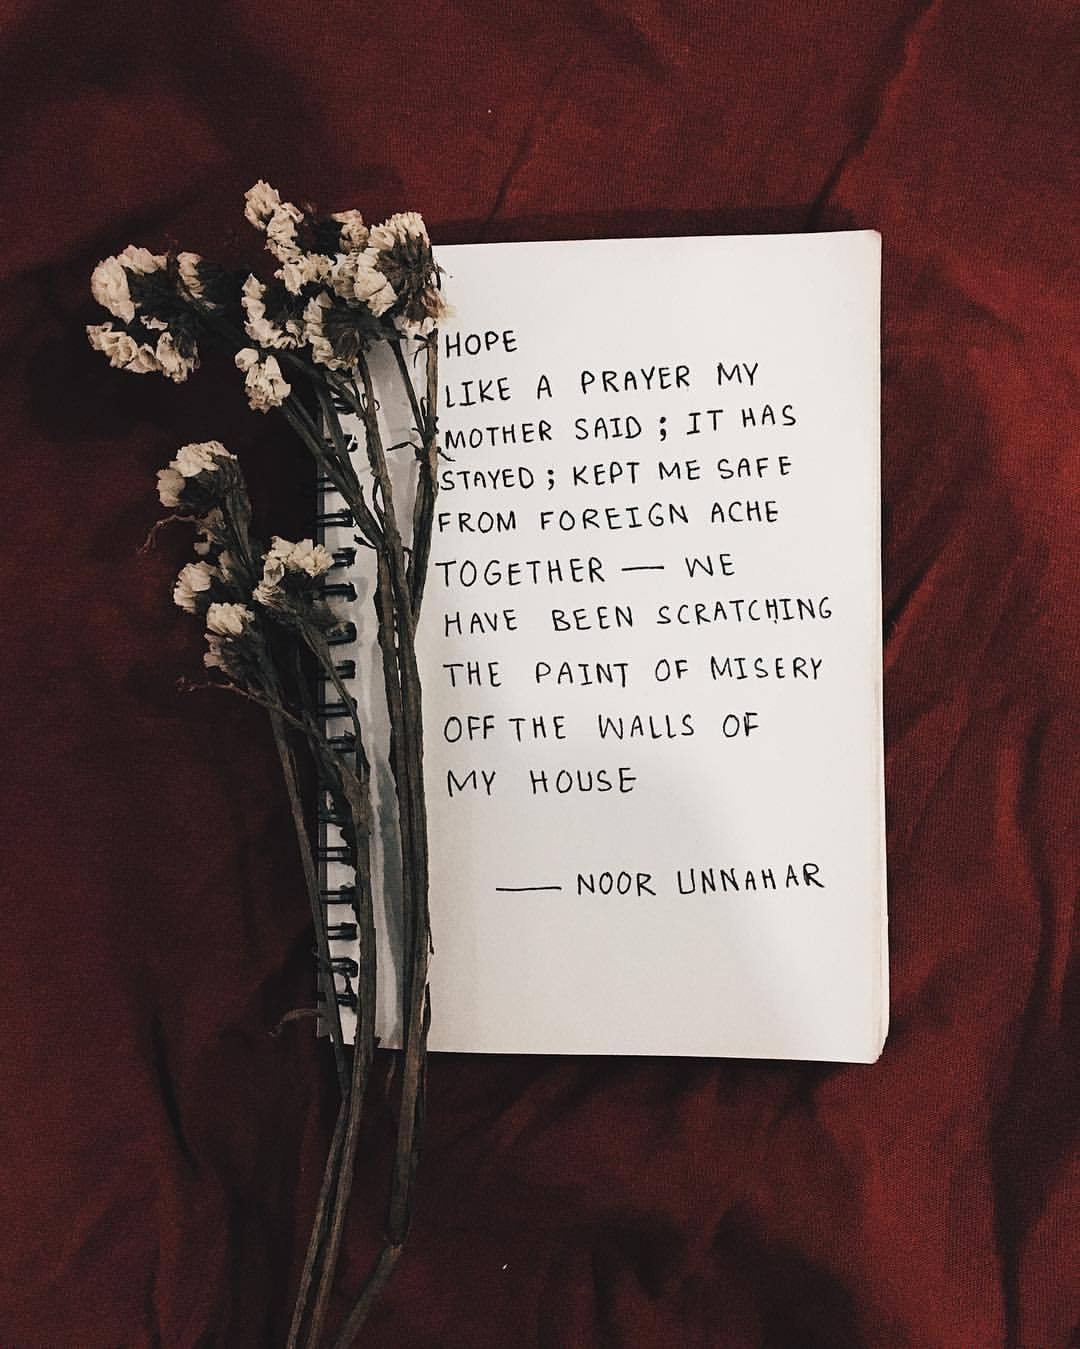 HOPE
LIKE A PRAYER MY
MOTHER SAID ; IT HAS
STAYED ; KEPT ME SAFE
FROM FOREIGN ACHE
TOGETHER — WE
HAVE BEEN SCRATCHING
THE PAINT OF MISERY
OFF THE WALLS OF
MY HOUSE
— NOOR UNNAHAR